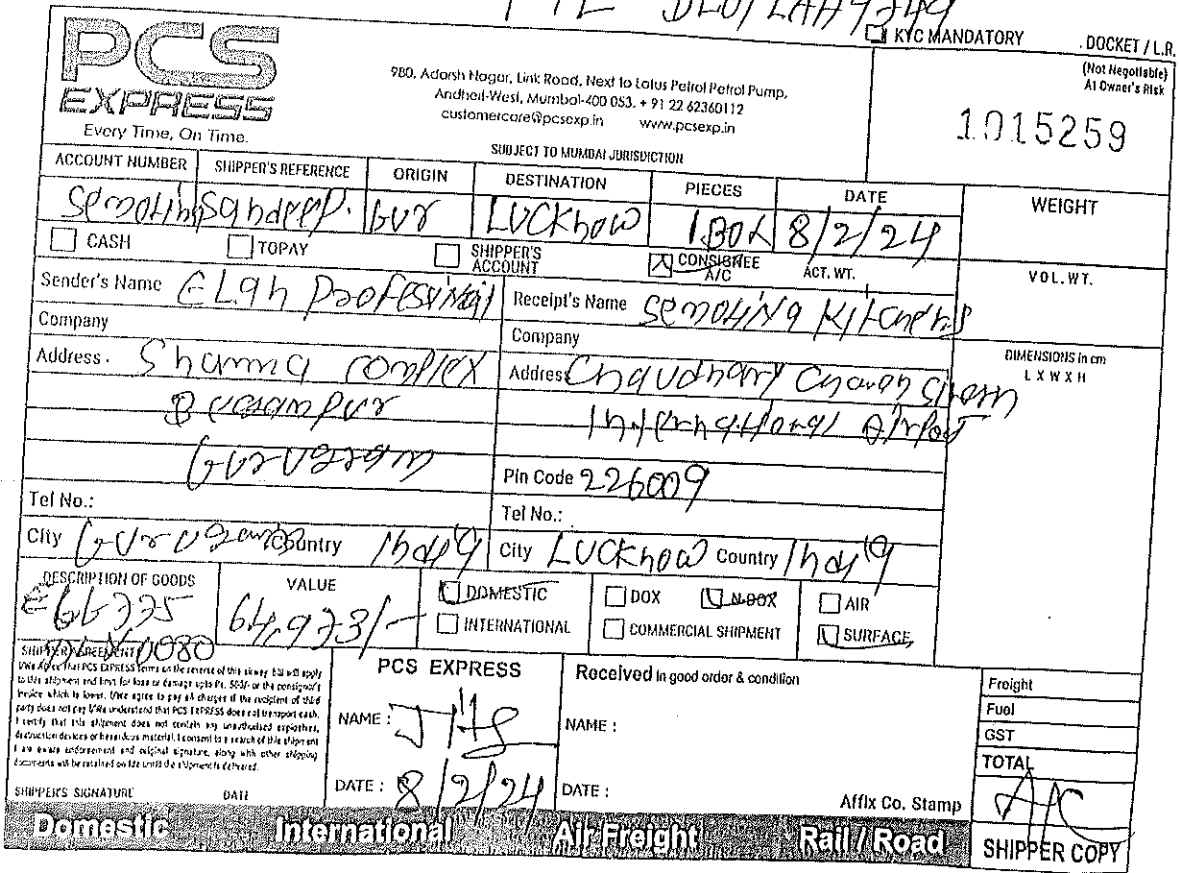 KYC MANDATORY
DOCKET / L.R.
(Not Negotiable)
At Owner's Risk
1015259
PCS
EXPRESS
Every Time, On Time.
980, Adarsh Nagar, Link Road, Next to Lotus Petrol Petrol Pump,
Andheri-West, Mumbai-400 053. + 91 22 62360112
customercare@pcsexp.in www.pcsexp.in
SUBJECT TO MUMBAI JURISDICTION
ACCOUNT NUMBER SHIPPER'S REFERENCE ORIGIN DESTINATION PIECES DATE WEIGHT
Sandeep. Gur Lucknow 1 Box 8/2/24
CASH TOPAY SHIPPER'S ACCOUNT CONSIGNEE A/C ACT. WT. VOL. WT.
Sender's Name Elan Professional
Company
Address. Shamma complex
Gurugram
Tel No.:
City Gurugram Country India
Receipt's Name Semolina Kitchens
Company
Address Chaudhary Charan Singh
International Airport
Pin Code 226009
Tel No.:
City Lucknow Country India
DIMENSIONS in cm
L X W X H
DESCRIPTION OF GOODS VALUE
64,973/-
DOMESTIC DOX N-DOX AIR
INTERNATIONAL COMMERCIAL SHIPMENT SURFACE
SHIPPER AGREEMENT
I/We Agree that PCS EXPRESS terms on the reverse of this airway bill will apply
to this shipment and limit for loss or damage upto Rs. 5000/- or the consignor's
invoice which is lower. I/We agree to pay all charges if the recipient of third
party does not pay I/We understand that PCS EXPRESS does not transport cash.
I certify that this shipment does not contain any unauthorised explosives,
destruction devices or hazardous material. I consent to a search of this shipment
I am aware endorsement and original signature, along with other shipping
documents will be retained on file until the shipment is delivered.
SHIPPER'S SIGNATURE DATE
PCS EXPRESS
NAME :
DATE : 8/2/24
Received in good order & condition
NAME :
DATE :
Affix Co. Stamp
Freight
Fuel
GST
TOTAL
A/C
SHIPPER COPY
Domestic International Air Freight Rail / Road